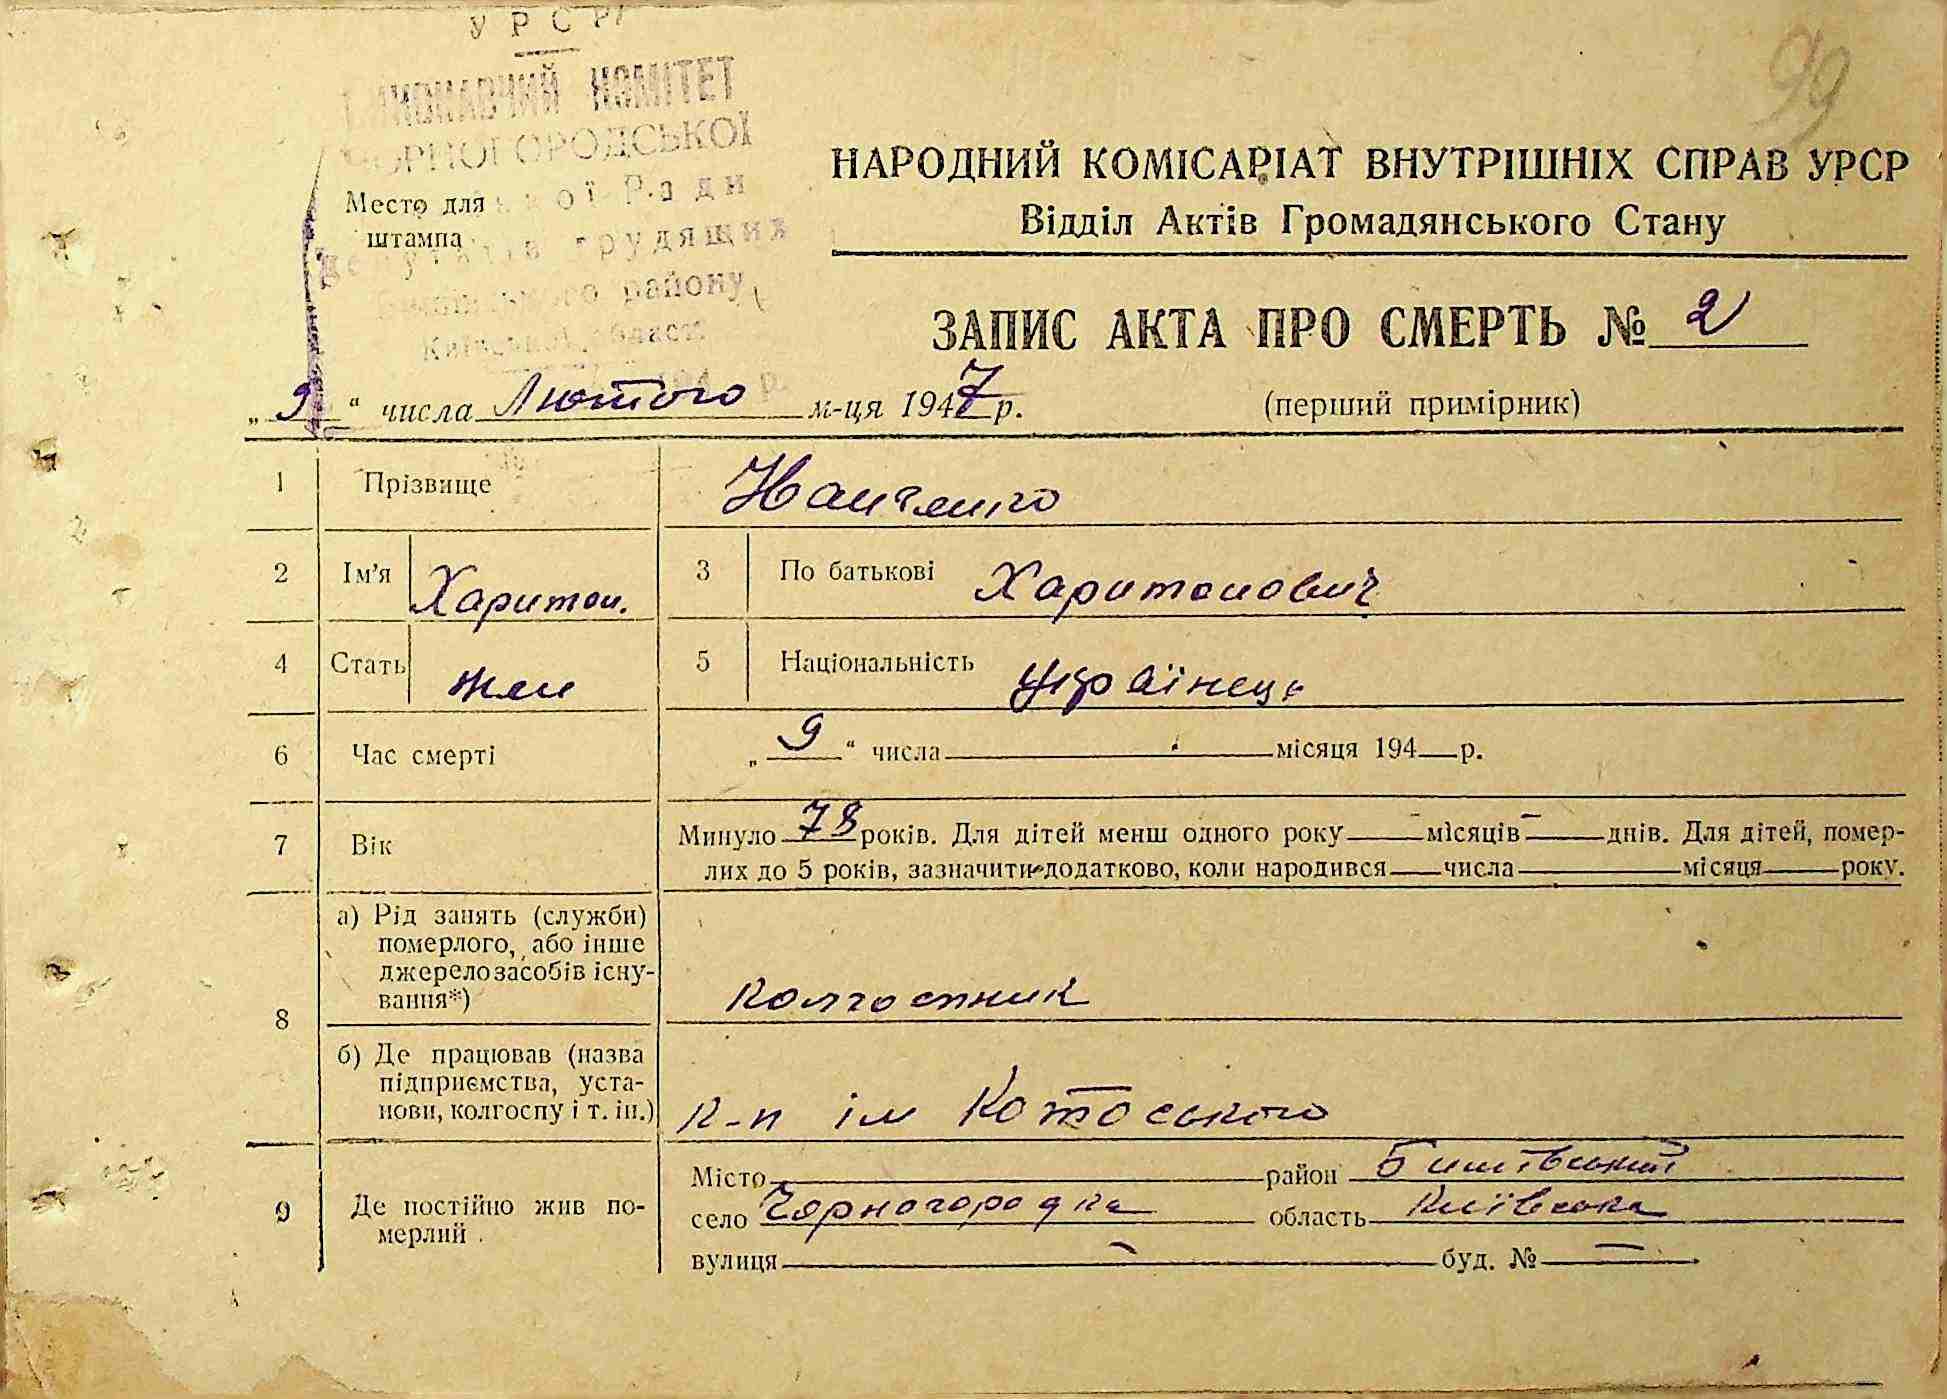 УРСР
ВИКОНАВЧИЙ КОМІТЕТ
ЧОРНОГОРОДСЬКОЇ
Ради
трудящих
району
99
Место для
штампа
НАРОДНИЙ КОМІСАРІАТ ВНУТРІШНІХ СПРАВ УРСР
Відділ Актів Громадянського Стану
ЗАПИС АКТА ПРО СМЕРТЬ № 2
„ 9 “ числа Лютого м-ця 1947 р. (перший примірник)
1 Прізвище
2 Ім'я Харитон. 3 По батькові Харитонович
4 Стать 5 Національність Українець
6 Час смерті „ 9 “ числа місяця 194 р.
7 Вік Минуло 78 років. Для дітей менш одного року — місяців — днів. Для дітей, помер-
лих до 5 років, зазначити додатково, коли народився числа місяця року.
а) Рід занять (служби)
померлого, або інше
джерело засобів існу-
вання*) колгоспник
8
б) Де працював (назва
підприємства, уста-
нови, колгоспу і т. ін.) к-п ім
Місто район Бишівський
9 Де постійно жив по-
мерлий село Чорногородка область Київська
вулиця — буд. № —